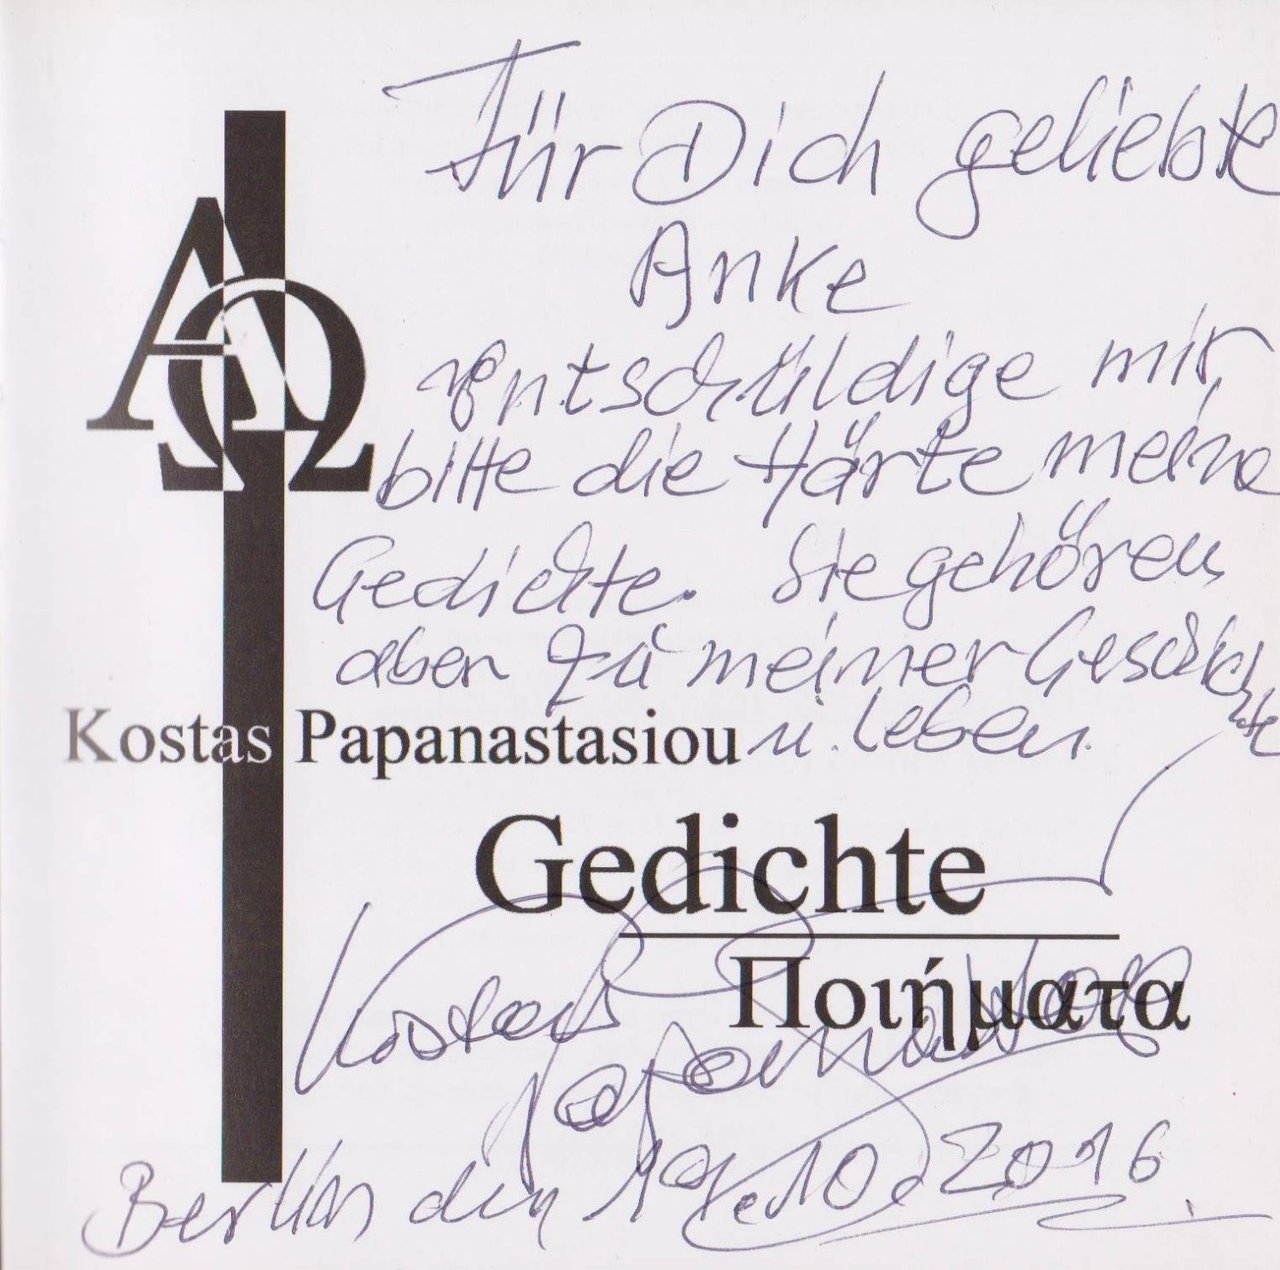 Für Dich geliebte
Anke
entschuldige mir
bitte die Härte meine
Gedichte. Sie gehören
aber zu meiner Geschichte
u. Leben.
ΑΩ
Kostas Papanastasiou
Gedichte
Ποιήματα
Kostas
Papanastasiou
Berlin den 10. 2016